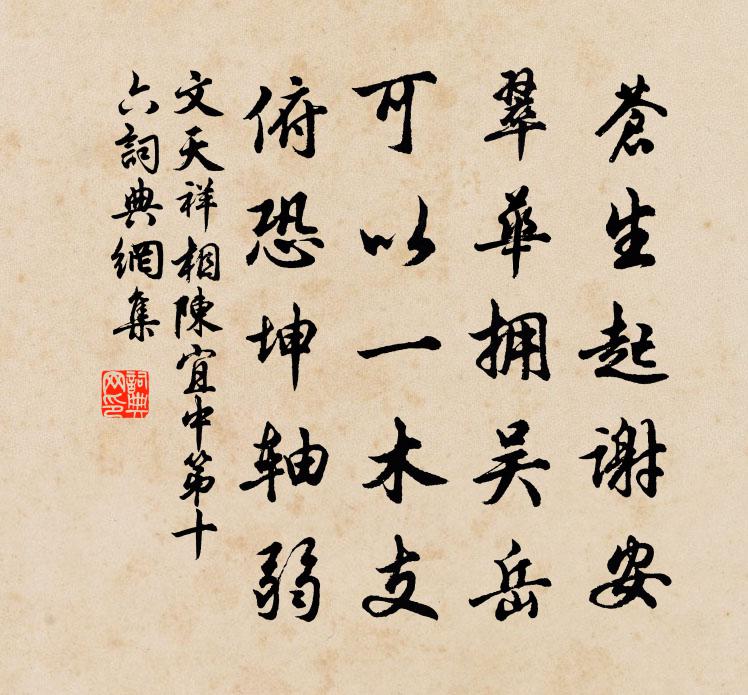 蒼生起谢安
翠華拥吴岳
可以一木支
俯恐坤轴弱
文天祥相陳宜中第十
六詞典網集
詞典
网印